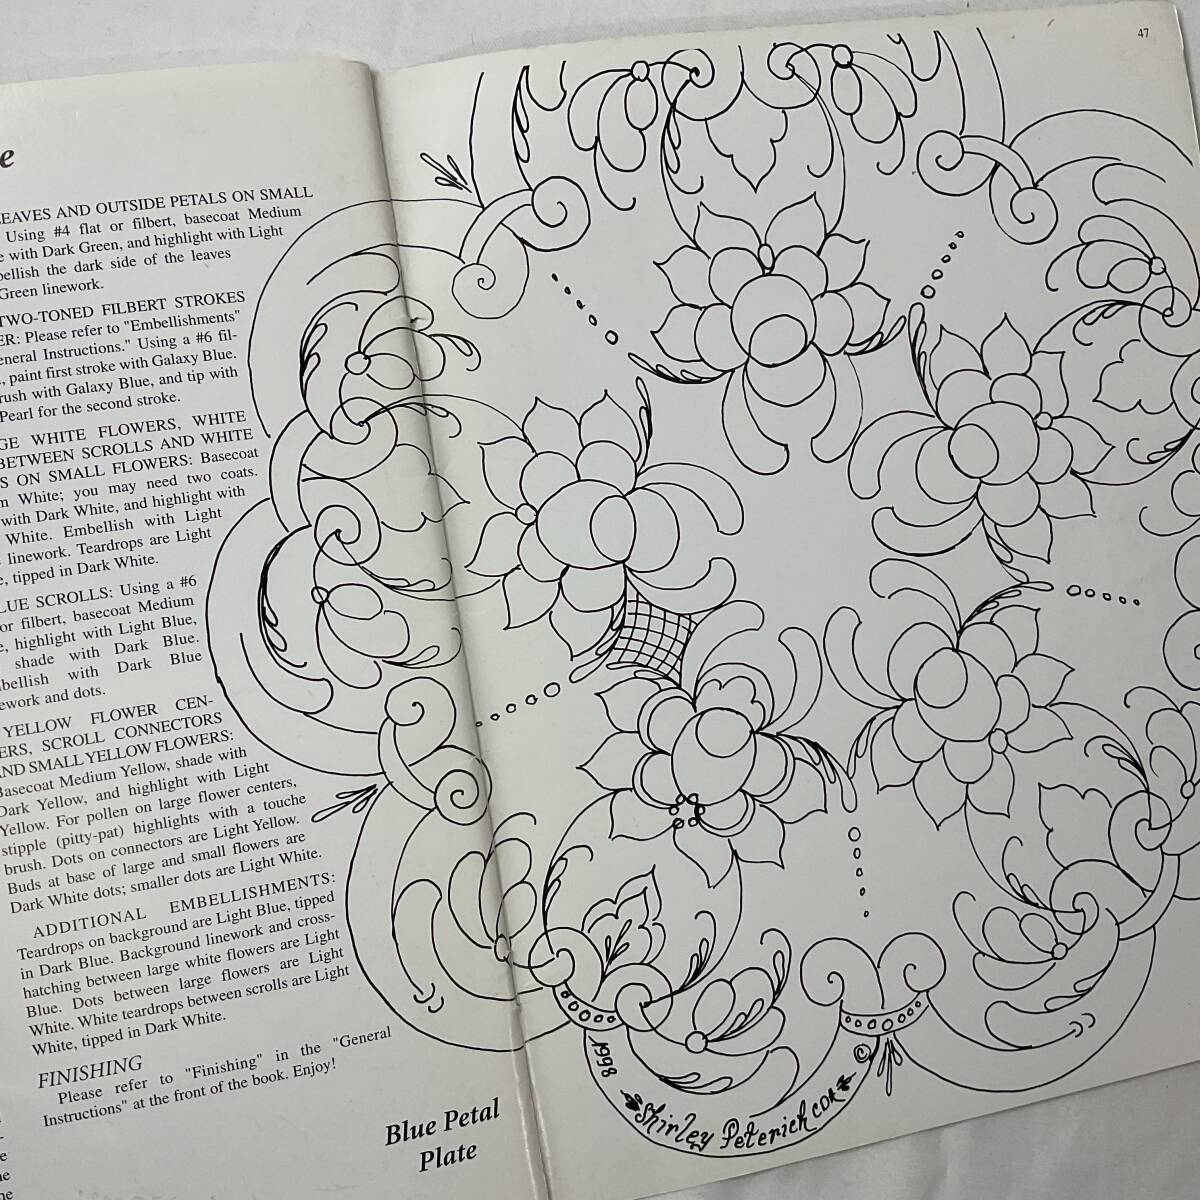 47
e
LEAVES AND OUTSIDE PETALS ON SMALL
Using #4 flat or filbert, basecoat Medium
e with Dark Green, and highlight with Light
bellish the dark side of the leaves
Green linework.
TWO-TONED FILBERT STROKES
ER: Please refer to "Embellishments"
eneral Instructions." Using a #6 fil-
, paint first stroke with Galaxy Blue.
rush with Galaxy Blue, and tip with
Pearl for the second stroke.
GE WHITE FLOWERS, WHITE
BETWEEN SCROLLS AND WHITE
S ON SMALL FLOWERS: Basecoat
m White; you may need two coats.
with Dark White, and highlight with
White. Embellish with Light
linework. Teardrops are Light
e, tipped in Dark White.
LUE SCROLLS: Using a #6
or filbert, basecoat Medium
e, highlight with Light Blue,
shade with Dark Blue.
bellish with Dark Blue
ework and dots.
YELLOW FLOWER CEN-
ERS, SCROLL CONNECTORS
AND SMALL YELLOW FLOWERS:
Basecoat Medium Yellow, shade with
Dark Yellow, and highlight with Light
Yellow. For pollen on large flower centers,
stipple (pitty-pat) highlights with a touche
brush. Dots on connectors are Light Yellow.
Buds at base of large and small flowers are
Dark White dots; smaller dots are Light White.
ADDITIONAL EMBELLISHMENTS:
Teardrops on background are Light Blue, tipped
in Dark Blue. Background linework and cross-
hatching between large white flowers are Light
Blue. Dots between large flowers are Light
White. White teardrops between scrolls are Light
White, tipped in Dark White.
FINISHING
Please refer to "Finishing" in the "General
Instructions" at the front of the book. Enjoy!
Blue Petal
Plate
1998
Shirley Peterich CDA ©